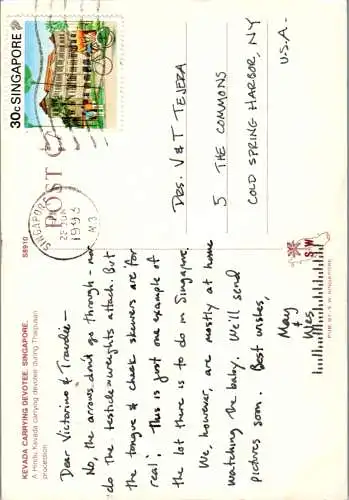 KEVADA CARRYING DEVOTEE. SINGAPORE.
A Hindu Kevada carrying devotee during Thaipusam
procession
S8910
POST C
30c SINGAPORE
SINGAPOR
1993
Dear Victorino & Traudie –
No, the arrows don't go through – nor
do the testicle-weights attach. But
the tongue & cheek skewers are for
real! This is just one example of
the lot there is to do in Singapore.
We, however, are mostly at home
watching the baby. We'll send
pictures soon. Best wishes,
May
&
Wes
DRS. V & T TEJERA
5 THE COMMONS
COLD SPRING HARBOR, NY
U.S.A.
S.W
PUB. BY: S.W. SINGAPORE